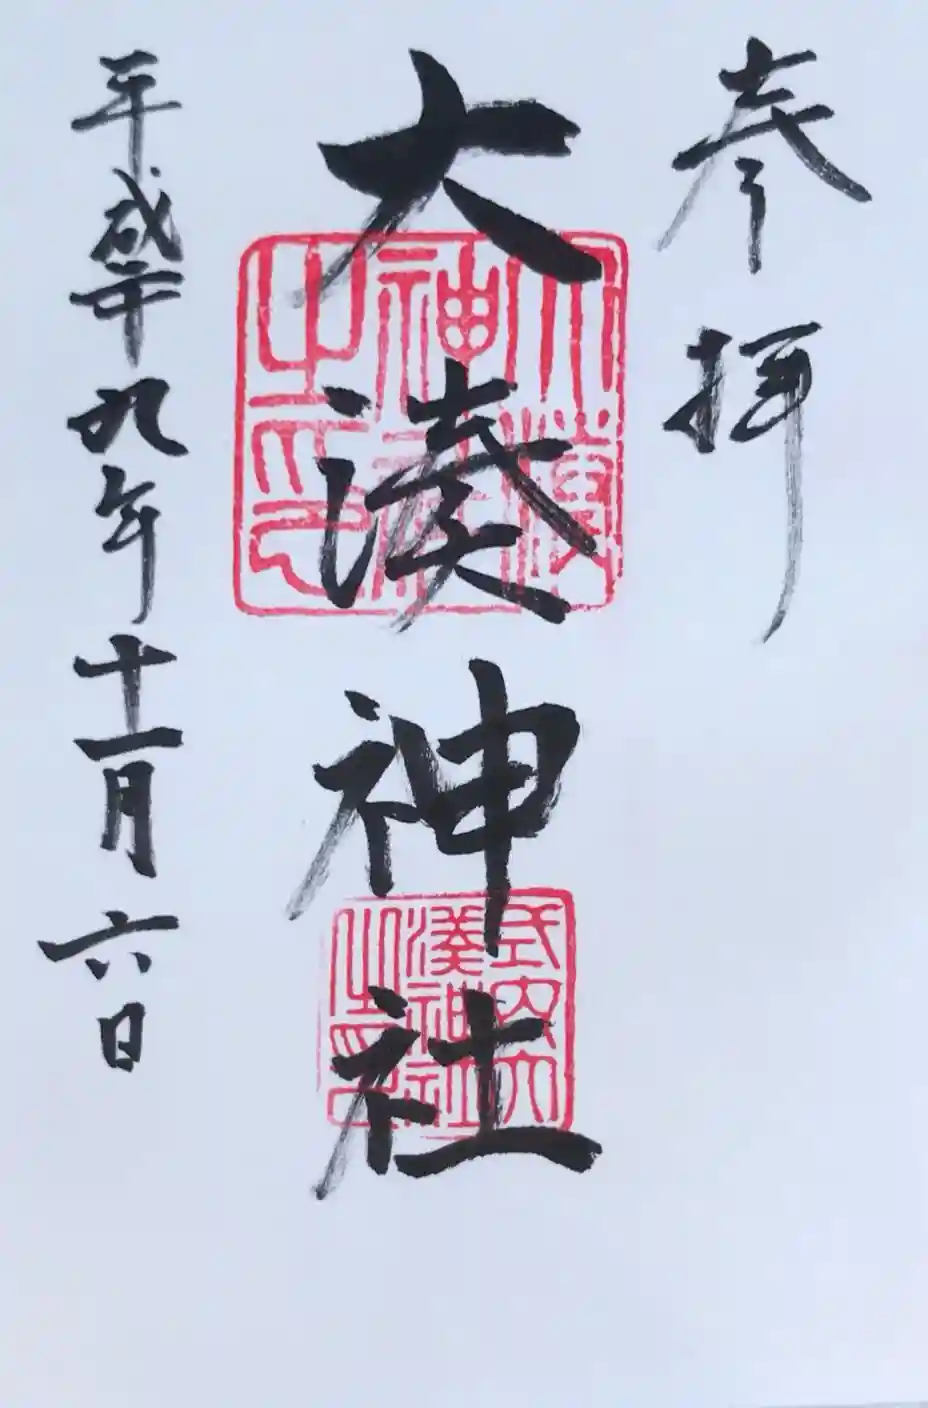 奉拝
大湊神社
平成二十九年十一月六日
大湊
神社
之印
式内大
湊神社
之印